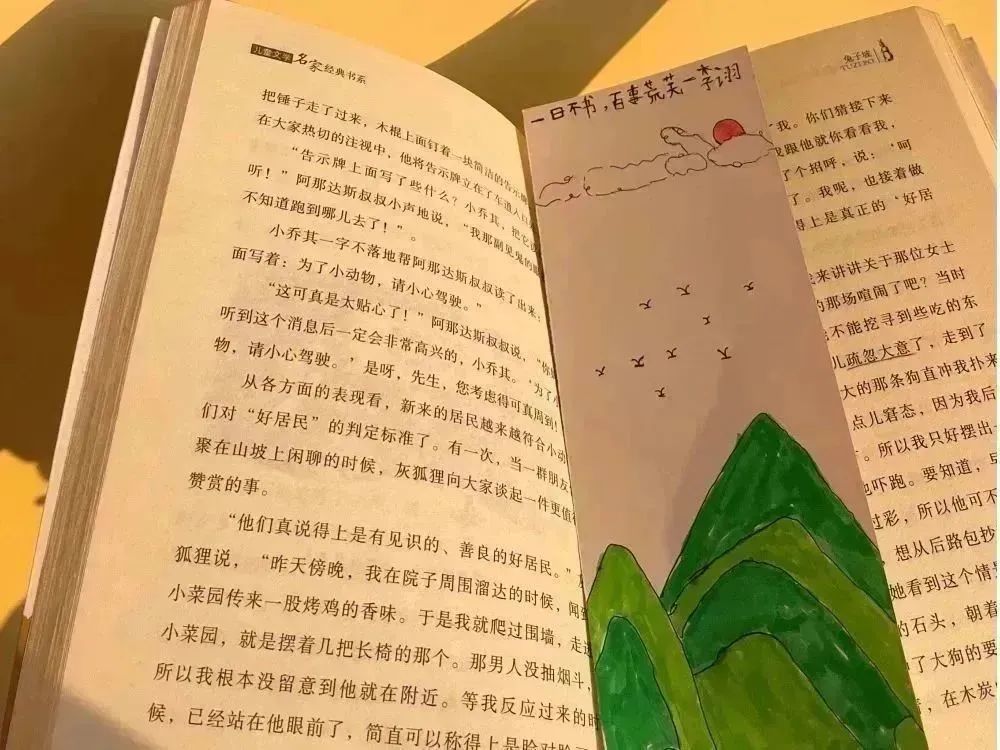 儿童文学名家经典书系
把锤子走了过来，木棍上面钉着一块简洁的告示牌
在大家热切的注视中，他将告示牌立在了车道入口
“告示牌上面写了些什么？小乔其，把它
听！”阿那达斯叔叔小声地说，“我那副见鬼的眼
不知道跑到哪儿去了！”。
小乔其一字不落地帮阿那达斯叔叔读了出来，
面写着：为了小动物，请小心驾驶。”
“这可真是太贴心了！”阿那达斯叔叔说，“你
听到这个消息后一定会非常高兴的，小乔其。‘为了小
物，请小心驾驶。’是呀，先生，您考虑得可真周到！
从各方面的表现看，新来的居民越来越符合小动
们对“好居民”的判定标准了。有一次，当一群朋友
聚在山坡上闲聊的时候，灰狐狸向大家谈起一件更值得
赞赏的事。
“他们真说得上是有见识的、善良的好居民。”
狐狸说，“昨天傍晚，我在院子周围溜达的时候，闻到
小菜园传来一股烤鸡的香味。于是我就爬过围墙，走进
小菜园，就是摆着几把长椅的那个。那男人没抽烟斗，
所以我根本没留意到他就在附近。等我反应过来的时
候，已经站在他眼前了，简直可以称得上是脸对脸了
一日不书，百事荒芜—李诩
兔子坡
TUZIPO
我。你们猜接下来
我跟他就你看看我，
了个招呼，说：‘呵
了。我呢，也接着做
得上是真正的‘好居
来讲讲关于那位女士
的那场喧闹了吧？当时
不能挖寻到些吃的东
儿疏忽大意了，走到了
大的那条狗直冲我扑来
点儿窘态，因为我后
。所以我只好摆出一
也吓跑。要知道，早
过彩，所以他可不
想从后路包抄
她看到这个情
的石头，朝着
了大狗的要
，在木炭